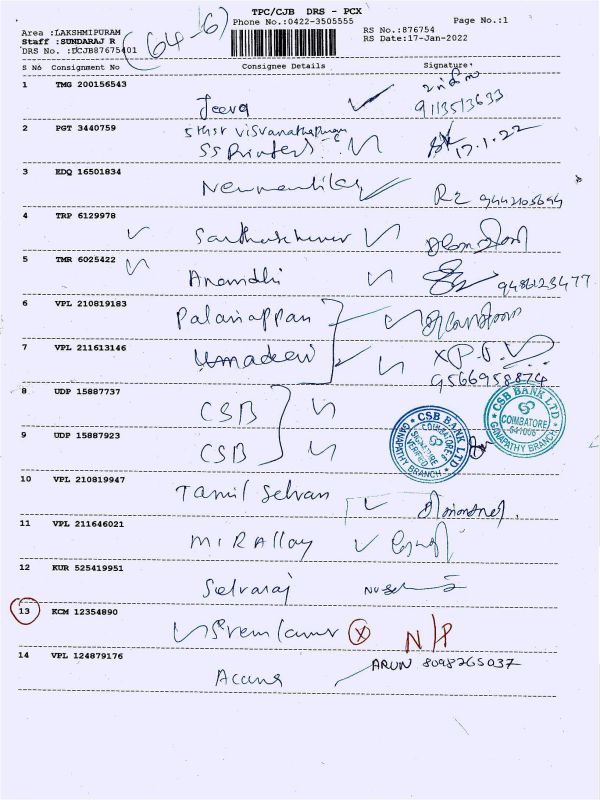 TPC/CJB DRS - PCX
Phone No.:0422-3505555 Page No.:1
Area :LAKSHMIPURAM RS No.:876754
Staff :SUNDARAJ R RS Date:17-Jan-2022
DRS No. :DCJB87675401
(64-6)
S Nó Consignment No Consignee Details Signature
1 TMG 200156543
Jeeva 9113513633
2 PGT 3440759
5th st Visvanathapuram
SS Printers 17.1.22
3 EDQ 16501834
R2 9442105694
4 TRP 6129978
5 TMR 6025422
Anandhi 9486123477
6 VPL 210819183
Palaniappan
7 VPL 211613146
Umadevi
9566958874
8 UDP 15887737
CSB
9 UDP 15887923
CSB
CSB BANK LTD
COIMBATORE
SIGNATURE
VERIFIED
GANAPATHY BRANCH
CSB BANK LTD
COIMBATORE
641006
GANAPATHY BRANCH
10 VPL 210819947
Tamil Selvan
11 VPL 211646021
MIR Alloy
12 KUR 525419951
Selvaraj
13 KCM 12354890
N/P
14 VPL 124879176
ARUN 8098265037